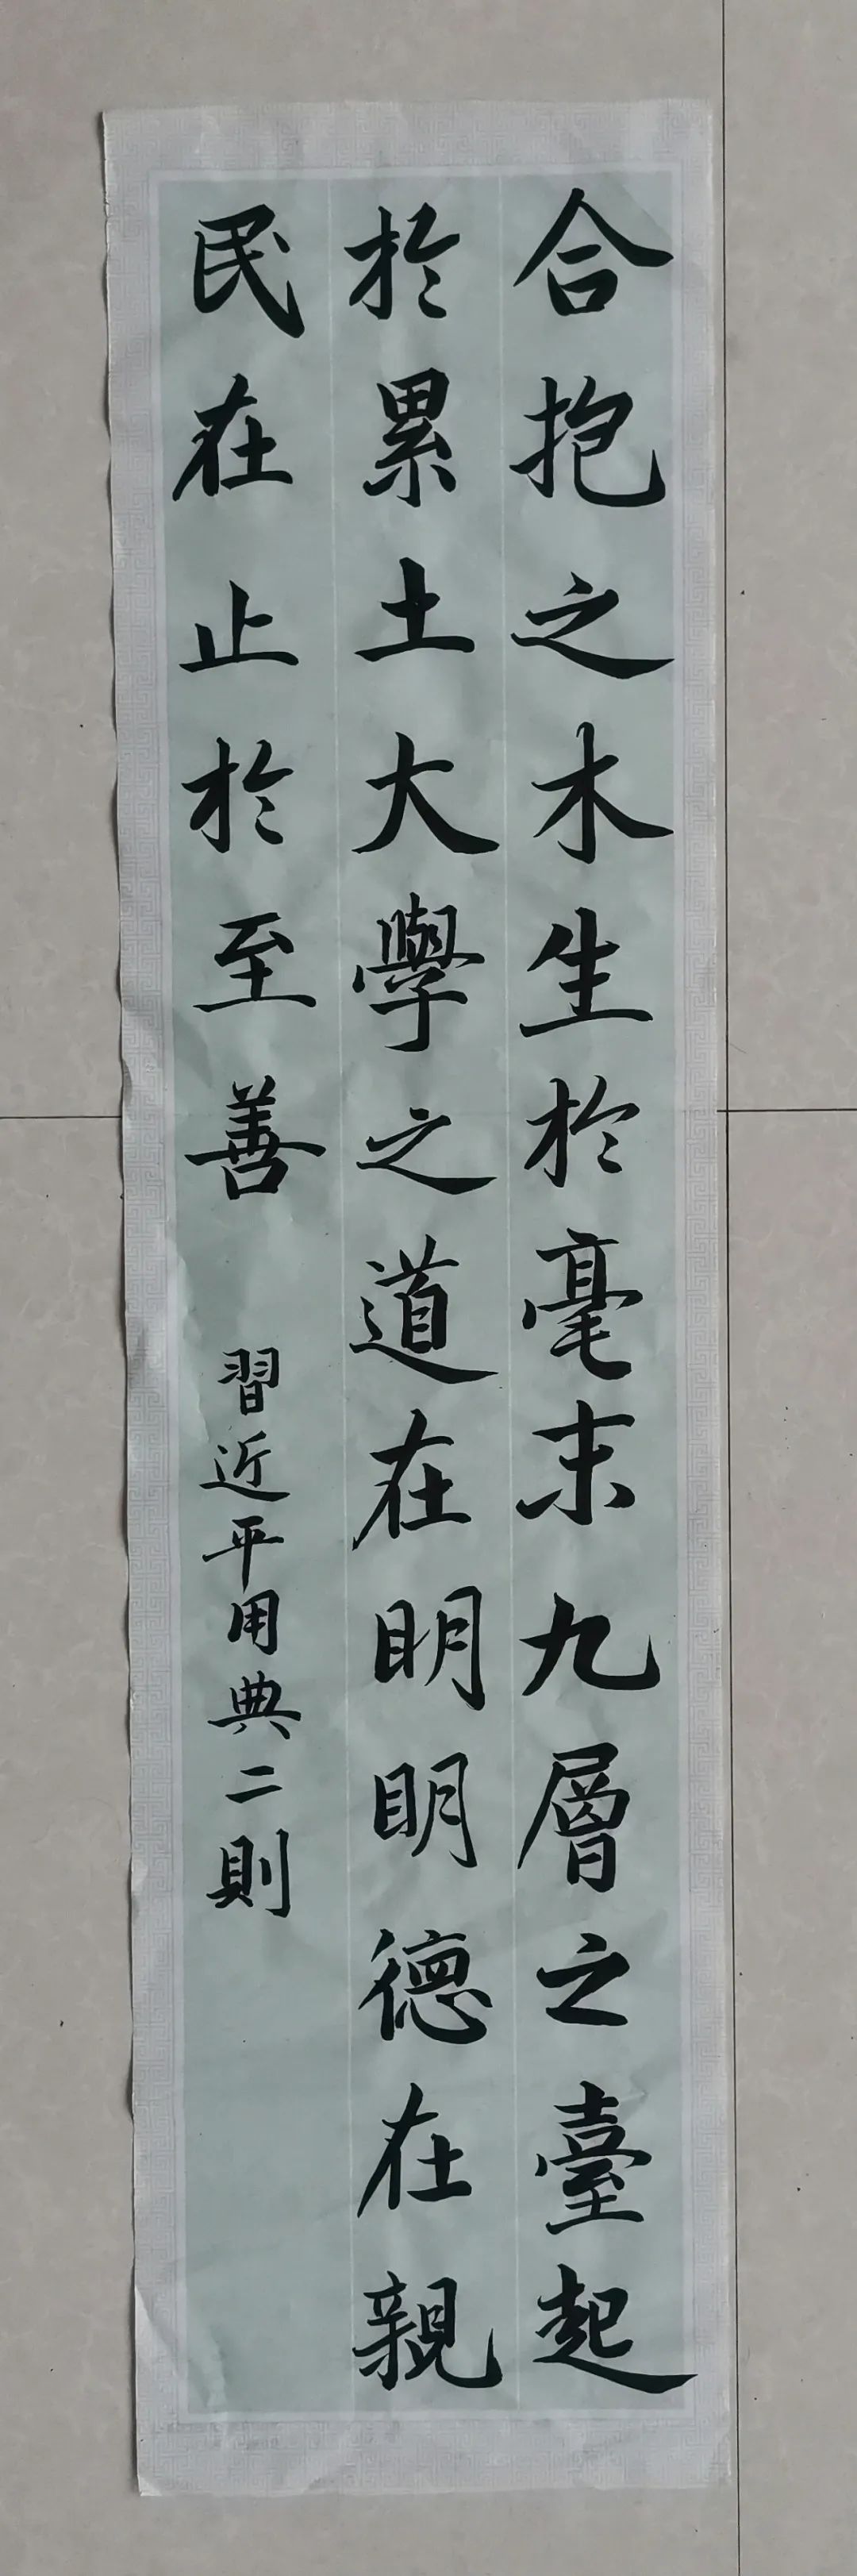 合抱之木生於毫末九層之臺起
於累土大學之道在明明德在親
民在止於至善
習近平用典二則